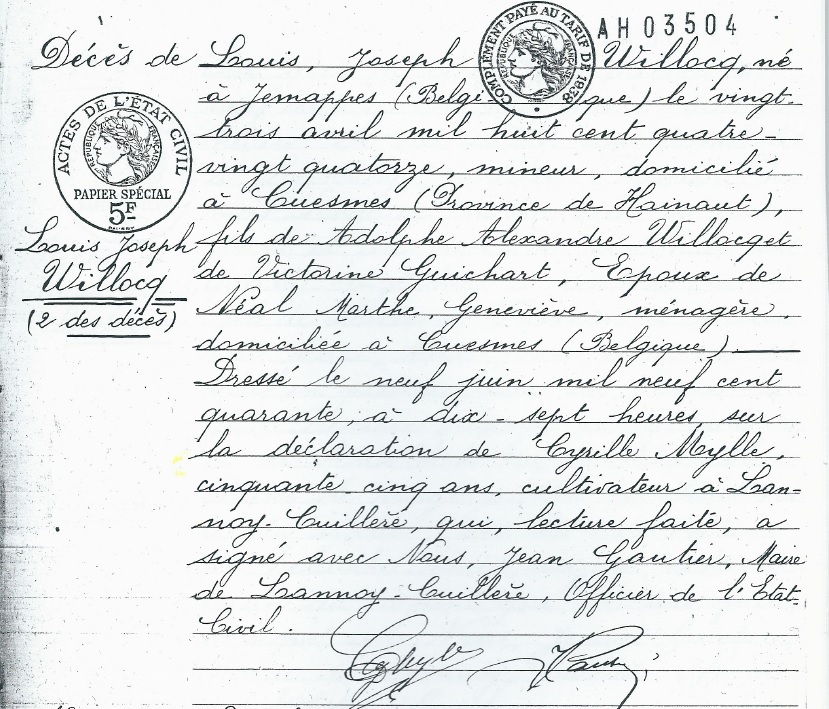 AH03504
COMPLÉMENT PAYÉ AU TARIF DE 1938
RÉPUBLIQUE FRANÇAISE
Décès de Louis, Joseph Willocq, né
à Jemappes (Belgique) le vingt-
trois avril mil huit cent quatre-
vingt quatorze, mineur, domicilié
à Cuesmes (Province de Hainaut),
fils de Adolphe Alexandre Willocq et
de Victorine Guichart, Epoux de
Néal Marthe, Geneviève, ménagère,
domiciliée à Cuesmes (Belgique)
Dressé le neuf juin mil neuf cent
quarante, à dix-sept heures, sur
la déclaration de Cyrille Mylle,
cinquante cinq ans, cultivateur à Lan-
noy-Cuillère, qui, lecture faite, a
signé avec Nous, Jean Gautier, Maire
de Lannoy-Cuillère, Officier de l'Etat-
Civil.
ACTES DE L'ÉTAT CIVIL
RÉPUBLIQUE FRANÇAISE
PAPIER SPÉCIAL
5F
Louis Joseph
Willocq
(2 des décès)